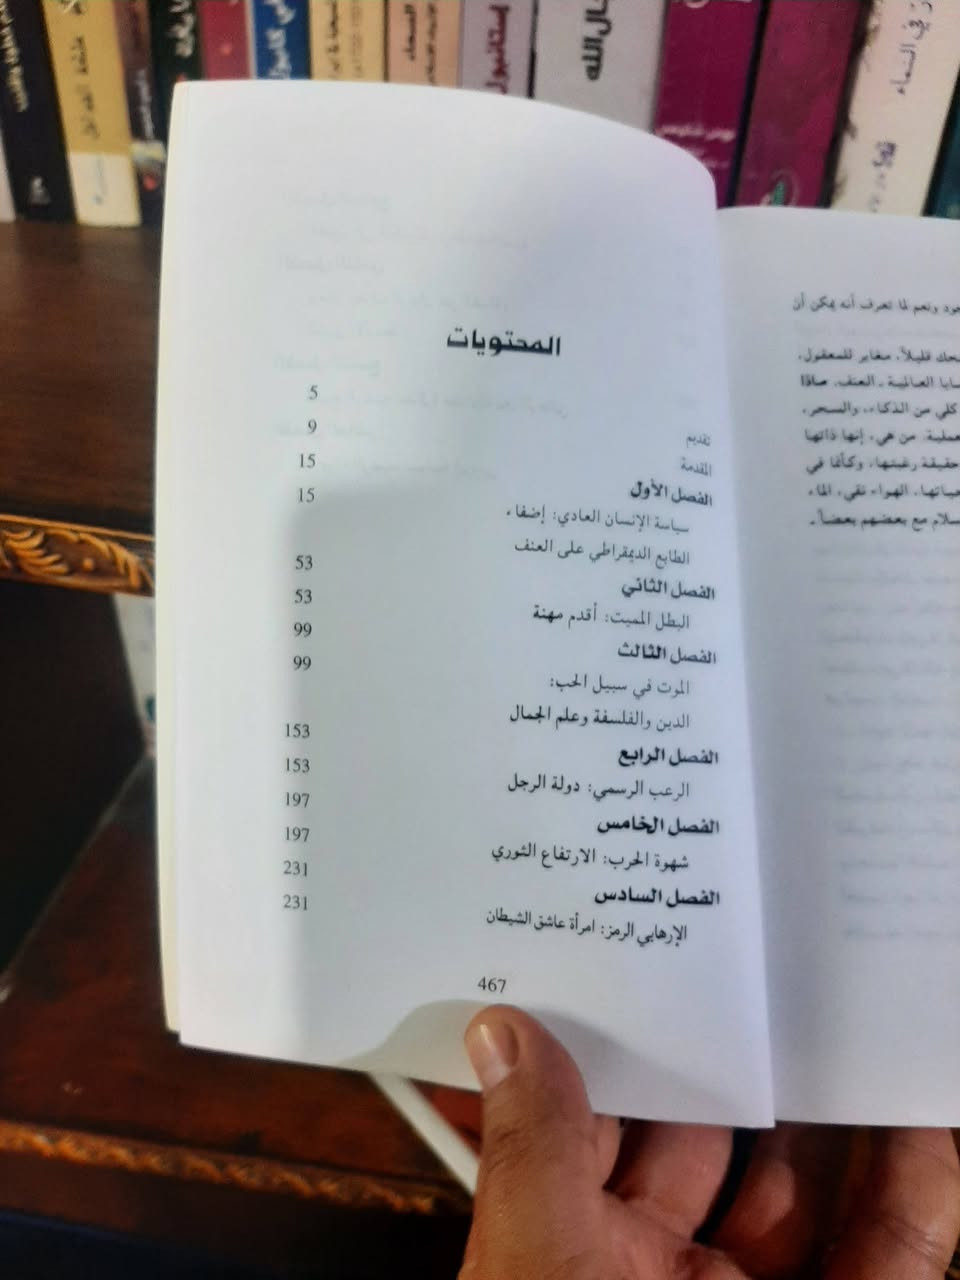 المحتويات
تقديم 5
المقدمة 9
الفصل الأول 15
سياسة الإنسان العادي: إضفاء 15
الطابع الديمقراطي على العنف
الفصل الثاني 53
البطل المميت: أقدم مهنة 53
الفصل الثالث 99
الموت في سبيل الحب: 99
الدين والفلسفة وعلم الجمال
الفصل الرابع 153
الرعب الرسمي: دولة الرجل 153
الفصل الخامس 197
شهوة الحرب: الارتفاع الثوري 197
الفصل السادس 231
الإرهابي الرمز: امرأة عاشق الشيطان 231
467
ونعم لما تعرف أنه يمكن أن
قليلاً، مغاير للمعقول،
العالمية ـ العنف. ماذا
كلي من الذكاء، والسحر،
من هي، إنها ذاتها
حقيقة رغبتها، وكأنما في
الهواء نقي، الماء
مع بعضهم بعضاً.
إستانبول
الله
في السماء